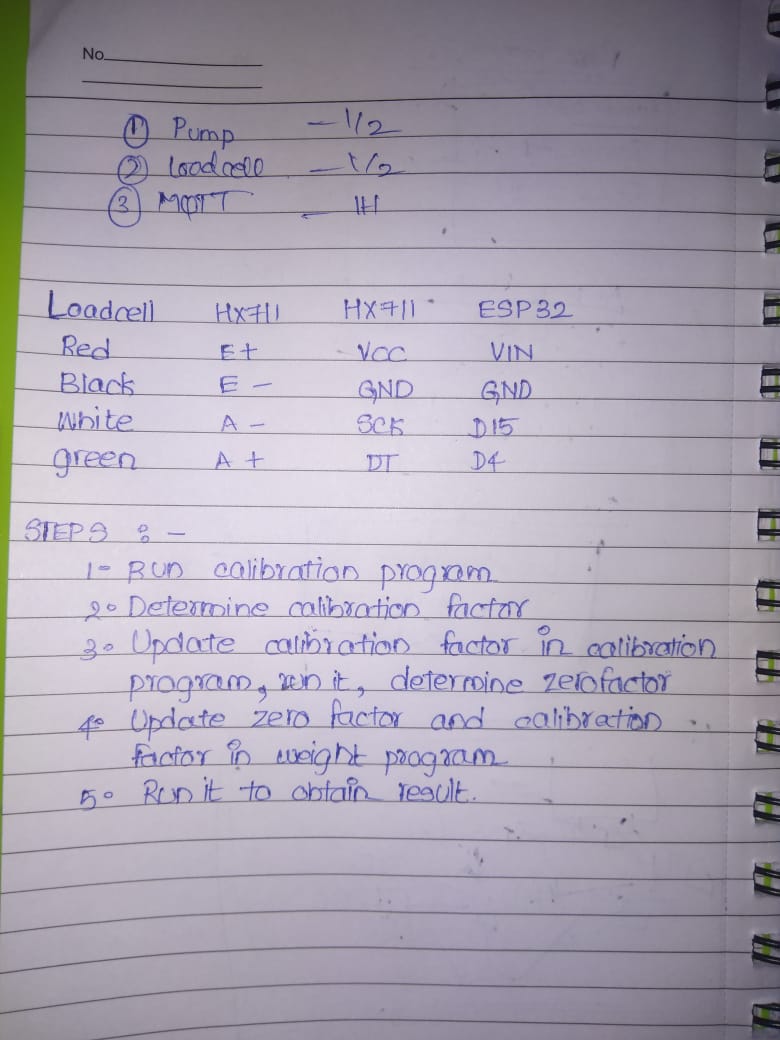 No
① Pump - 1/2
② loadcell - 1/2
③ MQTT - 1H
Loadcell HX711 HX711 ESP32
Red E+ VCC VIN
Black E- GND GND
White A- SCK D15
green A+ DT D4
STEPS :-
1- Run calibration program
2. Determine calibration factor
3. Update calibration factor in calibration
program, run it, determine zerofactor
4. Update zero factor and calibration
factor in weight program
5. Run it to obtain result.